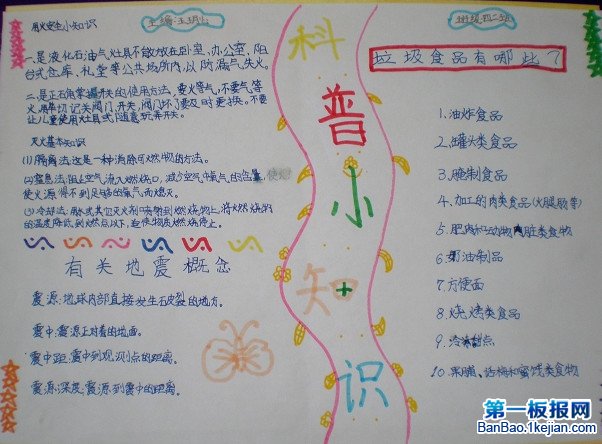 用火安全小知识
主编:王玥心
班级:四二班
一是液化石油气灶具不能放在卧室、办公室、阳
台式仓库、礼堂等公共场所内,以防漏气失火。
二是正确掌握开关的使用方法,要火等气,不要气等
火,用毕切记关阀门、开关,阀门坏了要及时更换。不要
让儿童使用灶具或随意玩弄开关。
灭火基本知识
(1)隔离法:这是一种消除可燃物的方法。
(2)窒息法:阻止空气流入燃烧口,减少空气中氧气的含量,使
火源得不到足够的氧气而熄灭。
(3)冷却法:用水或其它灭火剂喷射到燃烧物上,将燃烧物
的温度降低到燃点以下,迫使物质燃烧停止。
有关地震概念
震源:地球内部直接发生破裂的地方。
震中:震源正对着的地面。
震中距:震中到观测点的距离。
震源深度:震源到震中的距离。
科
普
小
知
识
垃圾食品有哪些?
1、油炸食品
2、罐头类食品
3、腌制食品
4、加工的肉类食品(火腿肠等)
5、肥肉和动物内脏类食物
6、奶油制品
7、方便面
8、烧烤类食品
9、冷冻甜点
10、果脯、话梅和蜜饯类食物
第一板报网
BanBao.1kejian.com